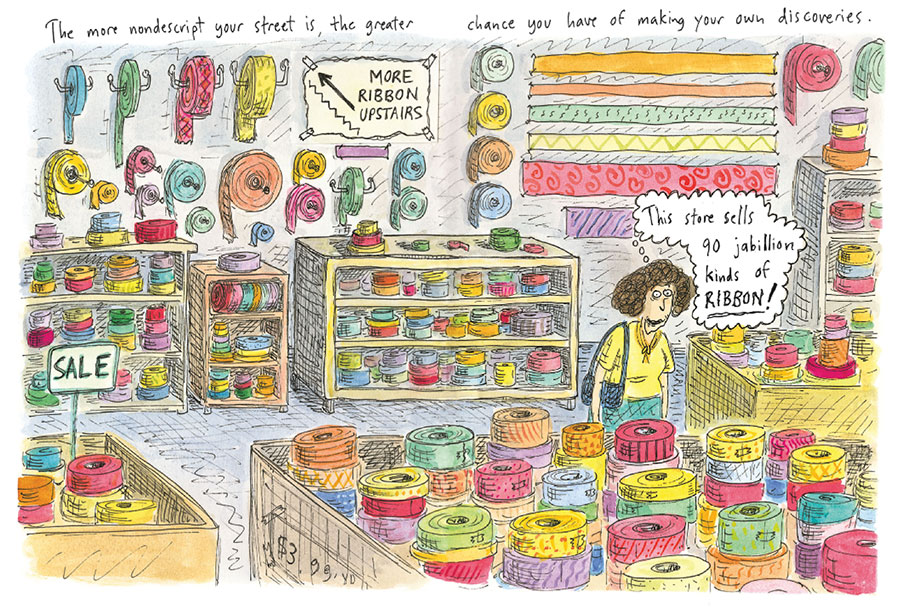 The more nondescript your street is, the greater chance you have of making your own discoveries.
MORE
RIBBON
UPSTAIRS
This store sells
90 jabillion
kinds of
RIBBON!
SALE
$3.99/YD